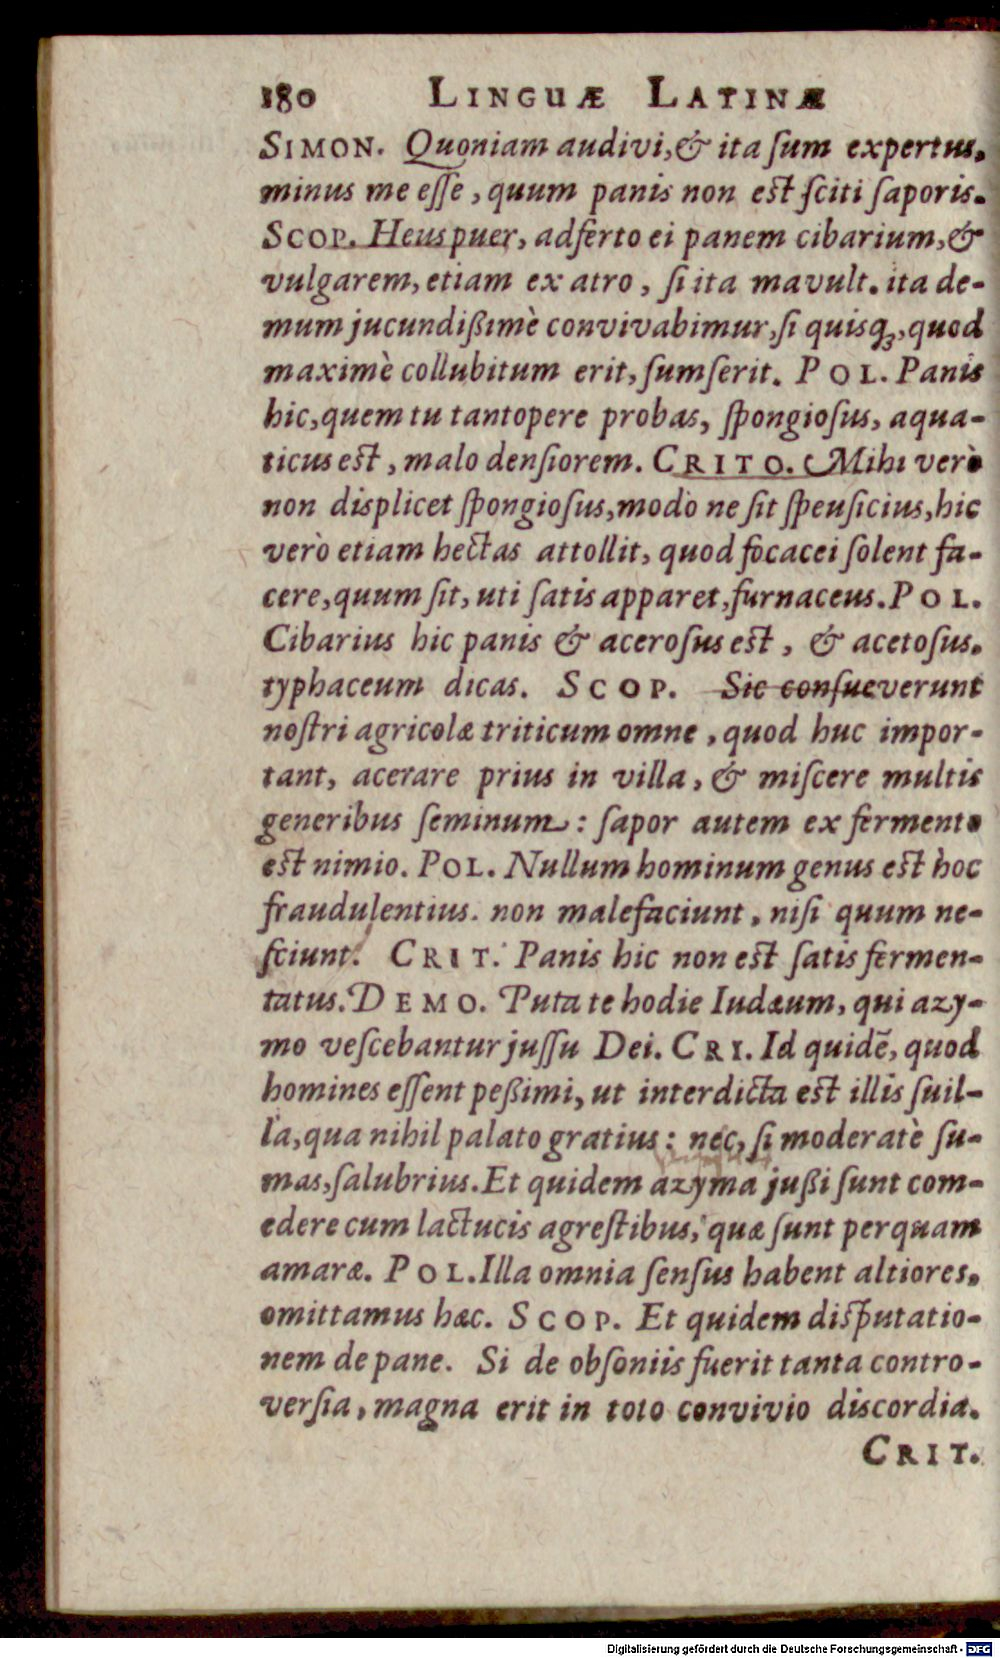 180 LINGUÆ LATINÆ
SIMON. Quoniam audivi, & ita ſum expertus,
minus me eſſe, quum panis non est ſciti ſaporis.
SCOP. Heus puer, adferto ei panem cibarium, &
vulgarem, etiam ex atro, ſi ita mavult. ita de-
mum jucundißimè convivabimur, ſi quisq₃, quod
maximè collubitum erit, ſumſerit. POL. Panis
hic, quem tu tantopere probas, ſpongioſus, aqua-
ticus est, malo denſiorem. CRITO. Mihi verò
non displicet ſpongioſus, modò ne ſit ſpeuſicius, hic
verò etiam hectas attollit, quod focacei ſolent fa-
cere, quum ſit, uti ſatis apparet, furnaceus. POL.
Cibarius hic panis & aceroſus est, & acetoſus.
typhaceum dicas. SCOP. Sic conſueverunt
noſtri agricolæ triticum omne, quod huc impor-
tant, acerare prius in villa, & miſcere multis
generibus ſeminum: ſapor autem ex fermento
est nimio. POL. Nullum hominum genus est hoc
fraudulentius. non malefaciunt, niſi quum ne-
ſciunt. CRIT. Panis hic non est ſatis fermen-
tatus. DEMO. Puta te hodie Iudæum, qui azy-
mo veſcebantur juſſu Dei. CRI. Id quidẽ, quod
homines eſſent peßimi, ut interdicta est illis ſuil-
la, qua nihil palato gratius: nec, ſi moderatè ſu-
mas, ſalubrius. Et quidem azyma jußi ſunt com-
edere cum lactucis agreſtibus, quæ ſunt perquam
amaræ. POL. Illa omnia ſenſus habent altiores.
omittamus hæc. SCOP. Et quidem diſputatio-
nem de pane. Si de obſoniis fuerit tanta contro-
verſia, magna erit in toto convivio discordia.
CRIT.
Digitalisierung gefördert durch die Deutsche Forschungsgemeinschaft - DFG